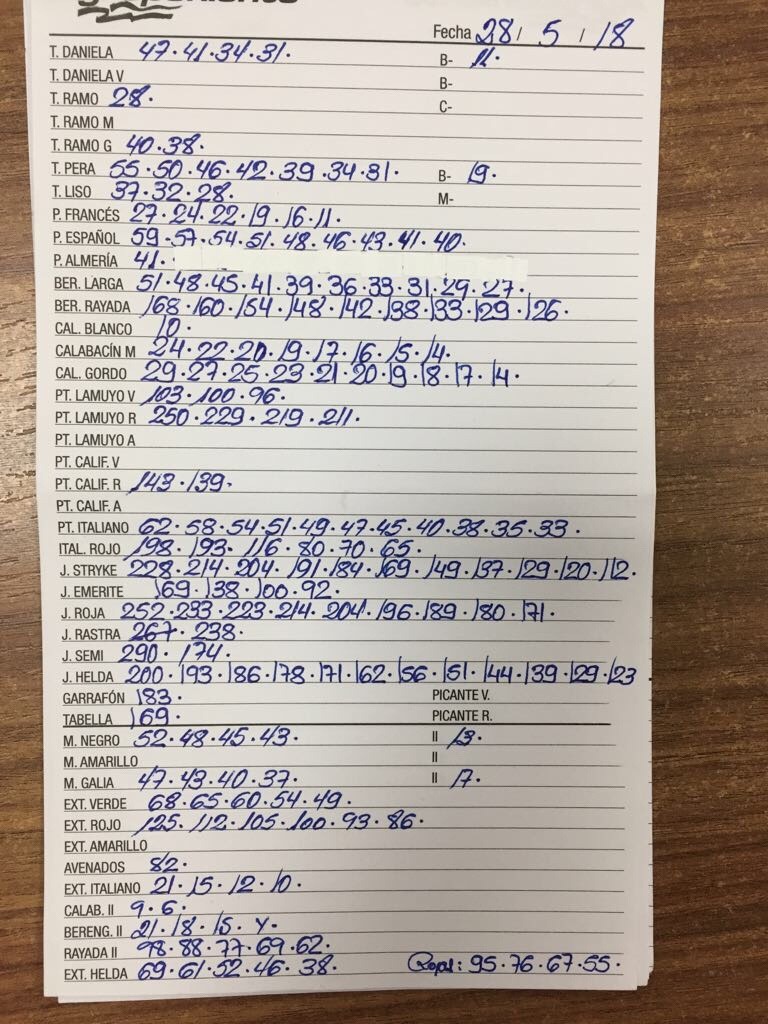 Fecha 28/ 5 / 18
T. DANELA 47·41·34·31· B- 11·
T. DANIELA V B-
T. RAMO 28· C-
T. RAMO M
T. RAMO G 40·38·
T. PERA 55·50·46·42·39·34·31· B- 19·
T. LISO 37·32·28· M-
P. FRANCÉS 27·24·22·19·16·11·
P. ESPAÑOL 59·57·54·51·48·46·43·41·40·
P. ALMERÍA 41·
BER. LARGA 51·48·45·41·39·36·33·31·29·27·
BER. RAYADA 168·160·154·148·142·138·133·129·126·
CAL. BLANCO 10·
CALABACÍN M 24·22·20·19·17·16·15·14·
CAL. GORDO 29·27·25·23·21·20·19·18·17·14·
PT. LAMUYO V 103·100·96·
PT. LAMUYO R 250·229·219·211·
PT. LAMUYO A
PT. CALIF. V
PT. CALIF. R 143·139·
PT. CALIF. A
PT. ITALIANO 62·58·54·51·49·47·45·40·38·35·33·
ITAL. ROJO 198·193·116·80·70·65·
J. STRYKE 228·214·204·191·184·169·149·137·129·120·112·
J. EMERITE 169·138·100·92·
J. ROJA 252·233·223·214·204·196·189·180·171·
J. RASTRA 267·238·
J. SEMI 290·174·
J. HELDA 200·193·186·178·171·162·156·151·144·139·129·123
GARRAFÓN 183· PICANTE V.
TABELLA 169· PICANTE R.
M. NEGRO 52·48·45·43· II 13·
M. AMARILLO II
M. GALIA 47·43·40·37· II 17·
EXT. VERDE 68·65·60·54·49·
EXT. ROJO 125·112·105·100·93·86·
EXT. AMARILLO
AVENADOS 82·
EXT. ITALIANO 21·15·12·10·
CALAB. II 9·6·
BERENG. II 21·18·15·
RAYADA II 98·88·77·69·62·
EXT. HELDA 69·61·52·46·38· 95·76·67·55·